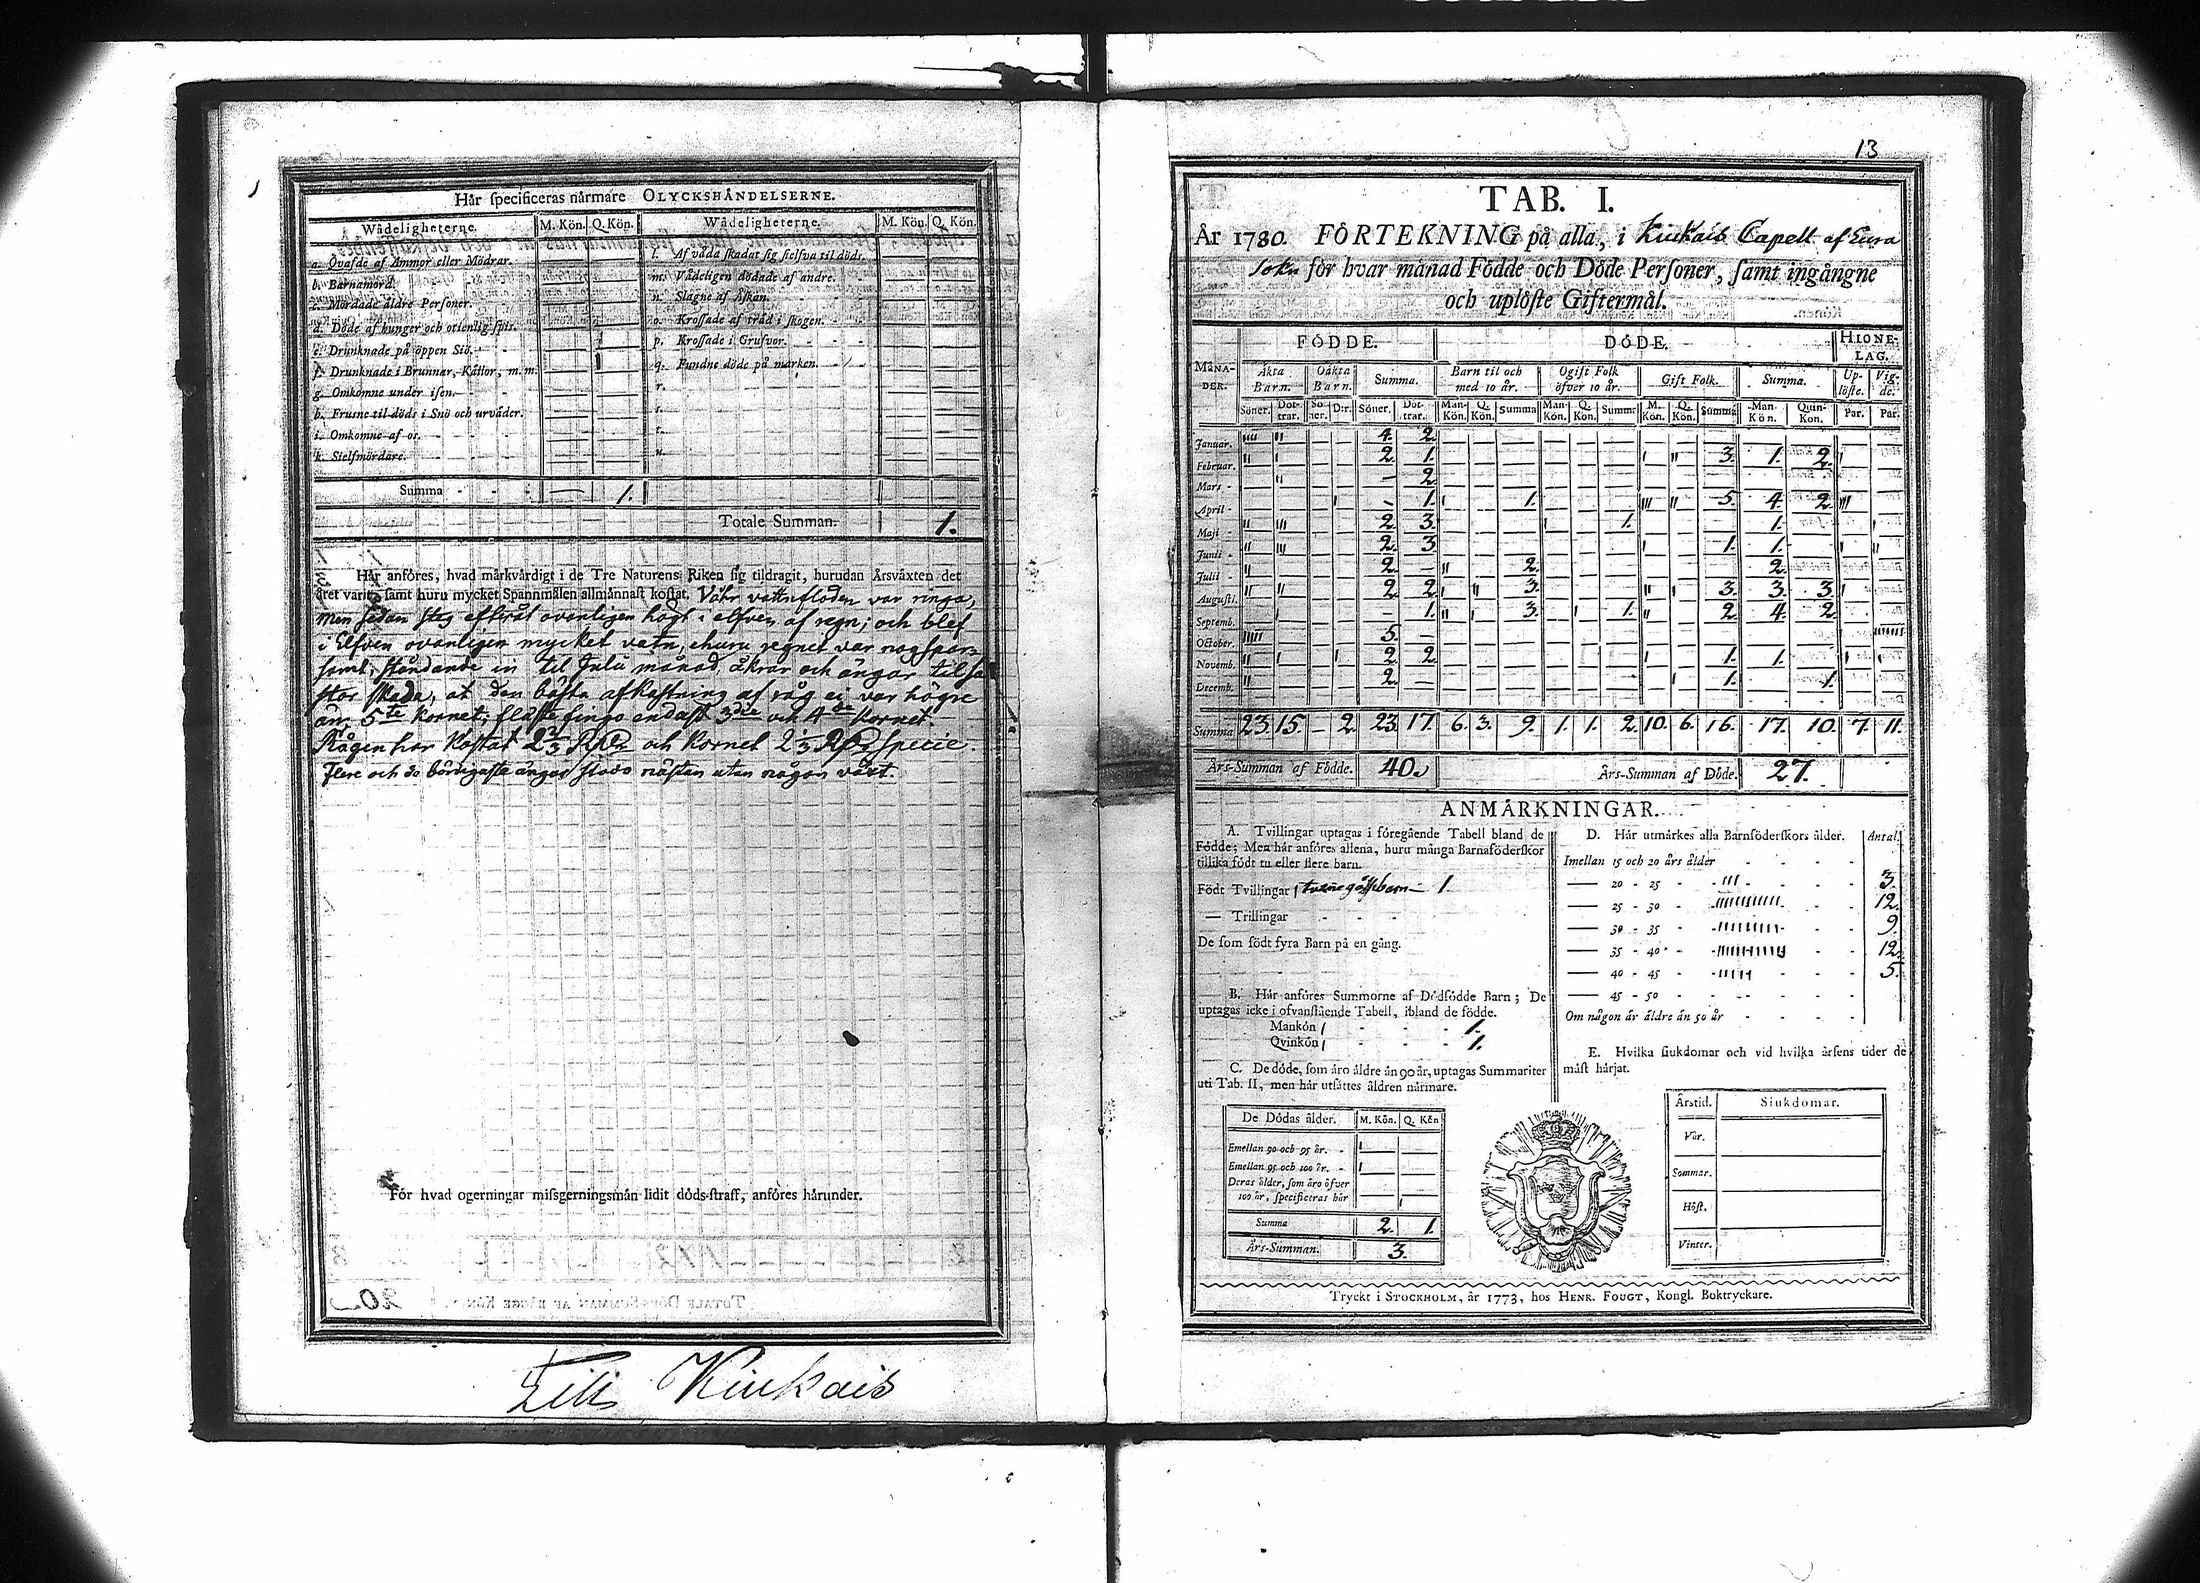 Här specificeras närmare OLYCKSHÄNDELSERNE.
Wådeligheterne. M. Kön. Q. Kön. Wådeligheterne. M. Kön. Q. Kön.
a. Qvafde af Ammor eller Mödrar.
b. Barnamord.
c. Mördade äldre Personer.
d. Döde af hunger och otienlig spis.
e. Drunknade på öppen Siö.
f. Drunknade i Brunnar, Källor, m. m.
g. Omkomne under isen.
h. Frusne til döds i Snö och urväder.
i. Omkomne af os.
k. Sielfmördare.
l. Af våda skadat sig sielfva til döds.
m. Vådeligen dödade af andre.
n. Slagne af Åskan.
o. Krossade af träd i skogen.
p. Krossade i Grufvor.
q. Fundne döde på marken.
r.
s.
t.
u.
Summa — 1.
Totale Summan. 1.
Här anföres, hvad märkvärdigt i de Tre Naturens Riken sig tildragit, hurudan Årsväxten det
året varit, samt huru mycket Spannmålen allmännast kostat. Vår vattufloden var ringa,
men sedan steg efteråt ovanligen högt i elfven af regn; och blef
i Elfven ovanligen mycket vatn, ehuru regnet var nog spar-
samt, ståndande in til Julii månad, åkrar och ängar til så
stor skada, at den bästa afkastning af råg ei var högre
än 5te kornet, fläste fingo endast 3die och 4de kornet.
Rågen har kostat 2 2/3 Rd och kornet 2 1/3 Rd Specie.
Flere och de bördigaste ängar stodo nästan utan någon växt.
För hvad ogerningar missgerningsmän lidit döds-straff, anföres härunder.
Till Kiukais
13
TAB. I.
År 1780. FÖRTEKNING på alla, i Kiukais Capell af Eura
Sokn för hvar månad Födde och Döde Personer, samt ingångne
och uplöste Giftermål.
MÅNADER. FÖDDE. DÖDE. HIONELAG.
Äkta Barn. Oäkta Barn. Summa. Barn til och med 10 år. Ogift Folk öfver 10 år. Gift Folk. Summa. Uplöste. Vigde.
Söner. Döttrar. Söner. D:r. Söner. Döttrar. Man-Kön. Q. Kön. Summa Man-Kön. Q. Kön. Summa M. Kön. Q. Kön. Summa Man-Kön. Quin-Kön. Par. Par.
Januar. 4. 2.
Februar. 2. 1. 3. 1. 2.
Mars - 2.
April - 1. 1. 5. 4. 2.
Maji - 2. 3. 1. 1.
Junii - 2. 3. 1. 1.
Julii - 2. 2. 2.
Augusti. 2. 2. 3. 3. 3. 3.
Septemb. 1. 3. 1. 2. 4. 2.
October. 5.
Novemb. 2. 2. 1. 1.
Decemb. 2. 1. 1.
Summa 23. 15. — 2. 23. 17. 6. 3. 9. 1. 1. 2. 10. 6. 16. 17. 10. 7. 11.
Års-Summan af Födde. 40. Års-Summan af Döde. 27.
ANMÄRKNINGAR.
A. Tvillingar uptagas i föregående Tabell bland de
Födde; Men här anföres allena, huru många Barnaföderskor
tillika födt tu eller flere barn.
Födt Tvillingar tvenne gåssebarn — 1.
— Trillingar
De som födt fyra Barn på en gång.
B. Här anföres Summorne af Dödfödde Barn; De
uptagas icke i ofvanstående Tabell, ibland de födde.
Mankön 1.
Qvinkön 1.
C. De döde, som äro äldre än 90 år, uptagas Summariter
uti Tab. II, men här utsättes åldren närmare.
De Dödas ålder. M. Kön. Q. Kön
Emellan 90 och 95 år.
Emellan 95 och 100 år.
Deras ålder, som äro öfver
100 år, specificeras här
Summa 2. 1.
Års-Summan. 3.
D. Här utmärkes alla Barnföderskors ålder. Antal.
Imellan 15 och 20 års ålder
— 20 - 25 3.
— 25 - 30 12.
— 30 - 35 9.
— 35 - 40 12.
— 40 - 45 5.
— 45 - 50
Om någon är äldre än 50 år
E. Hvilka siukdomar och vid hvilka årsens tider de
mäst härjat.
Årstid. Siukdomar.
Vår.
Sommar.
Höst.
Vinter.
Tryckt i STOCKHOLM, år 1773, hos HENR. FOUGT, Kongl. Boktryckare.